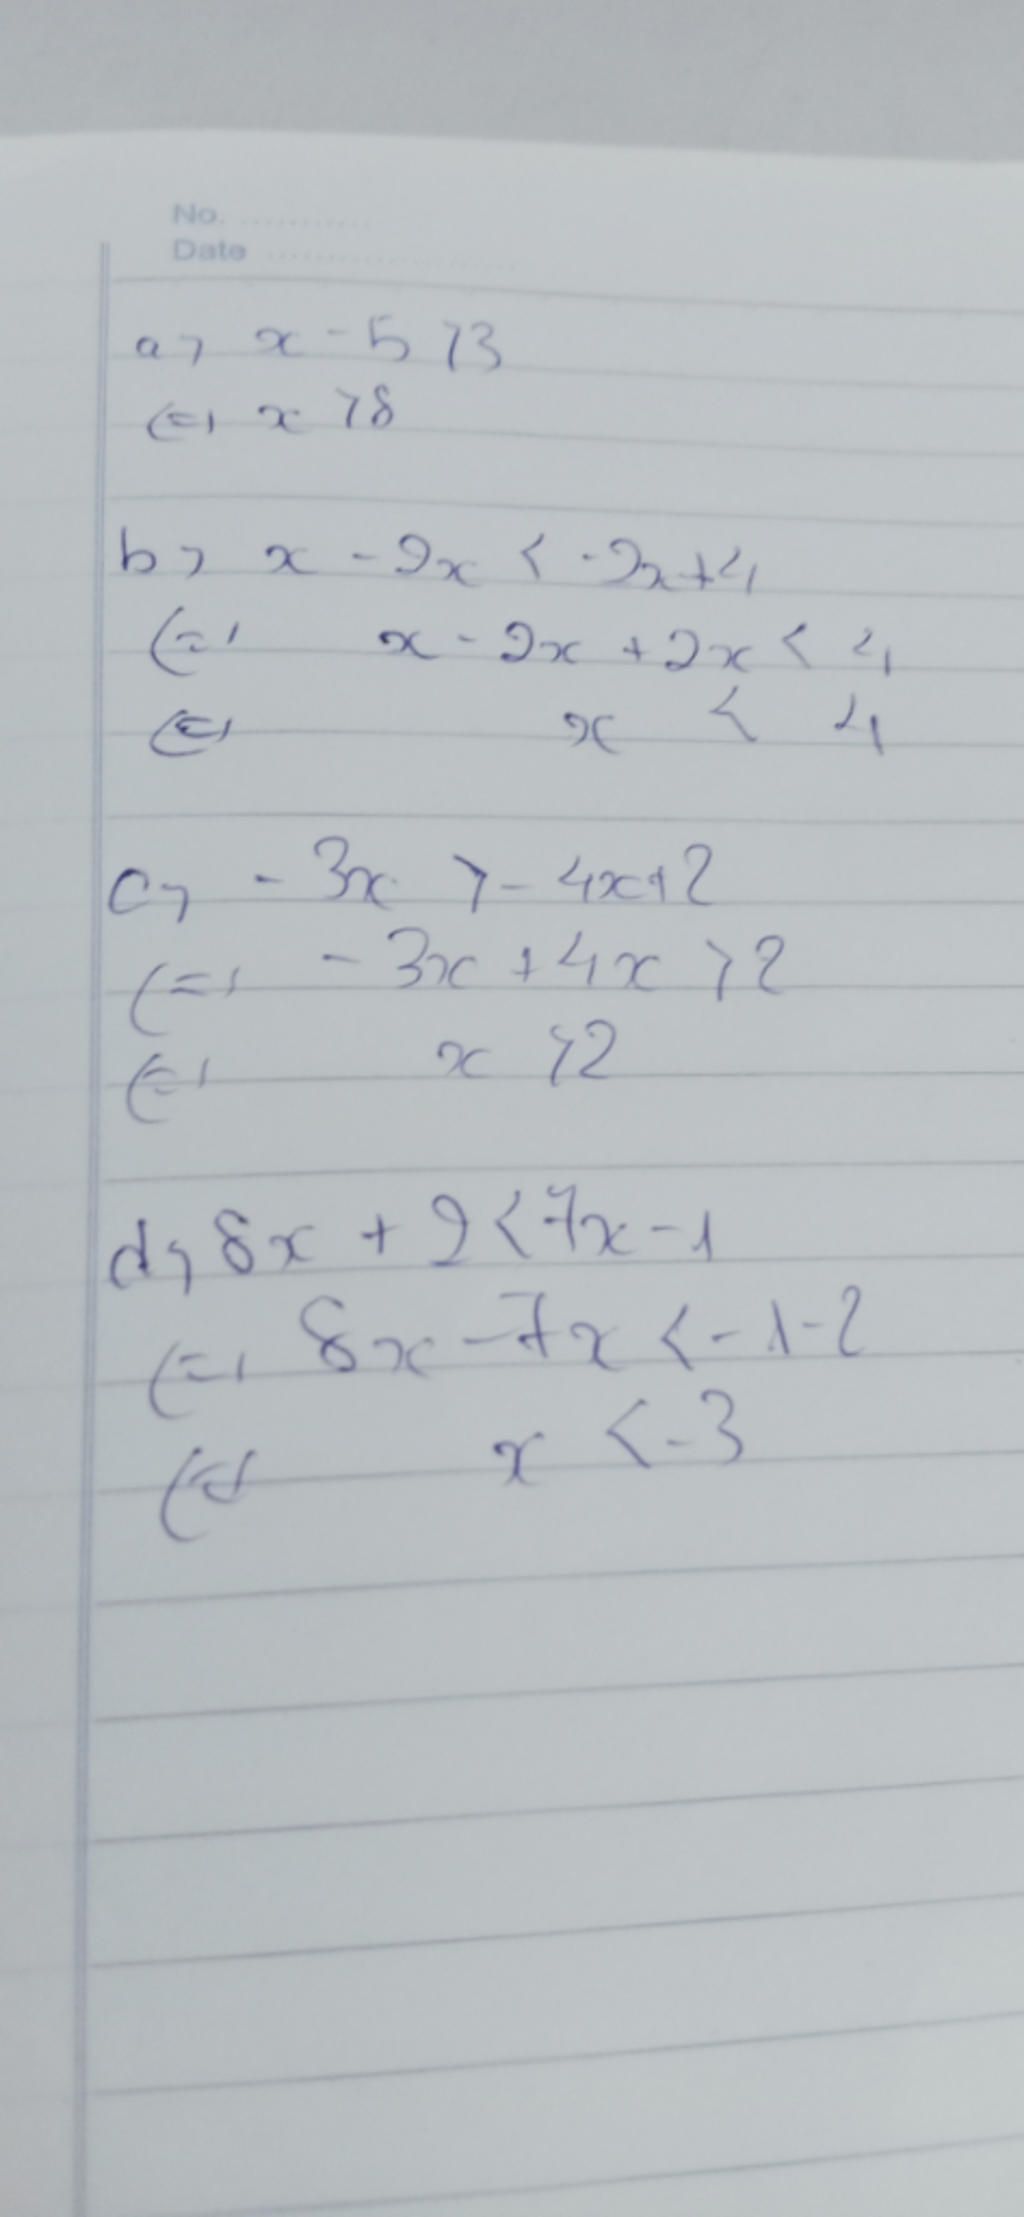 No. ............
Date ....................
a> x - 5 > 3
<=> x > 8
b> x - 2x < -2x + 4
<=> x - 2x + 2x < 4
<=> x < 4
c> - 3x > - 4x + 2
<=> - 3x + 4x > 2
<=> x > 2
d> 8x + 2 < 7x - 1
<=> 8x - 7x < - 1 - 2
<=> x < - 3